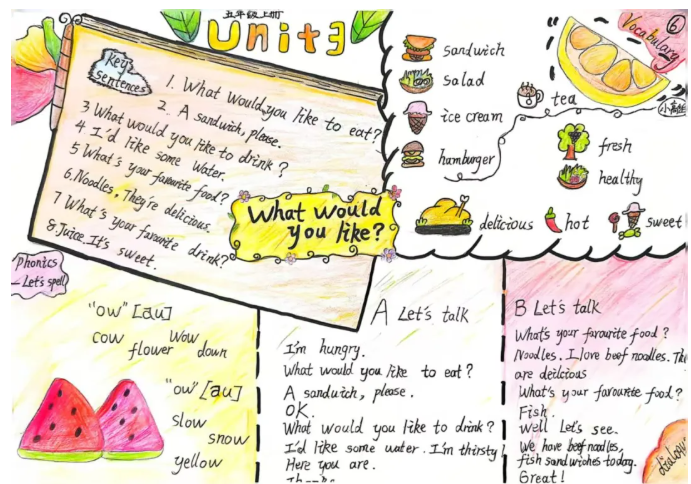 五年级上册
Unit3
Key sentences
1. What would you like to eat?
2. A sandwich, please.
3 What would you like to drink?
4. I'd like some water.
5 What's your favourite food?
6. Noodles. They're delicious.
7 What's your favourite drink?
8 Juice. It's sweet.
What would
you like?
Vocabulary
6
sandwich
salad
ice cream
hamburger
tea
fresh
healthy
delicious
hot
sweet
Phonics
—Let's spell
"ow" [au]
cow
wow
flower
down
"ow" [au]
slow
snow
yellow
A Let's talk
I'm hungry.
What would you like to eat?
A sandwich, please.
OK.
What would you like to drink?
I'd like some water. I'm thirsty!
Here you are.
B Let's talk
What's your favourite food?
Noodles. I love beef noodles. The
are deilcious
What's your favourite food?
Fish.
Well Let's see.
We have beef noodles,
fish sandwiches today.
Great!
dialogu